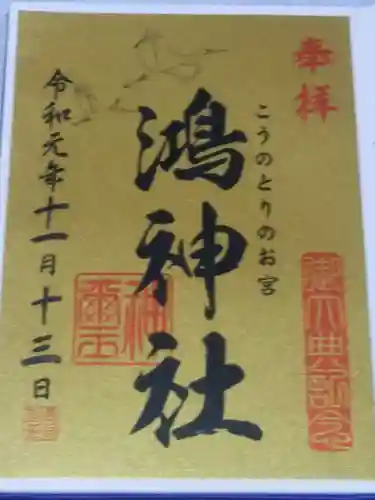 奉拝
こうのとりのお宮
鴻神社
令和元年十一月十三日
御大典記念